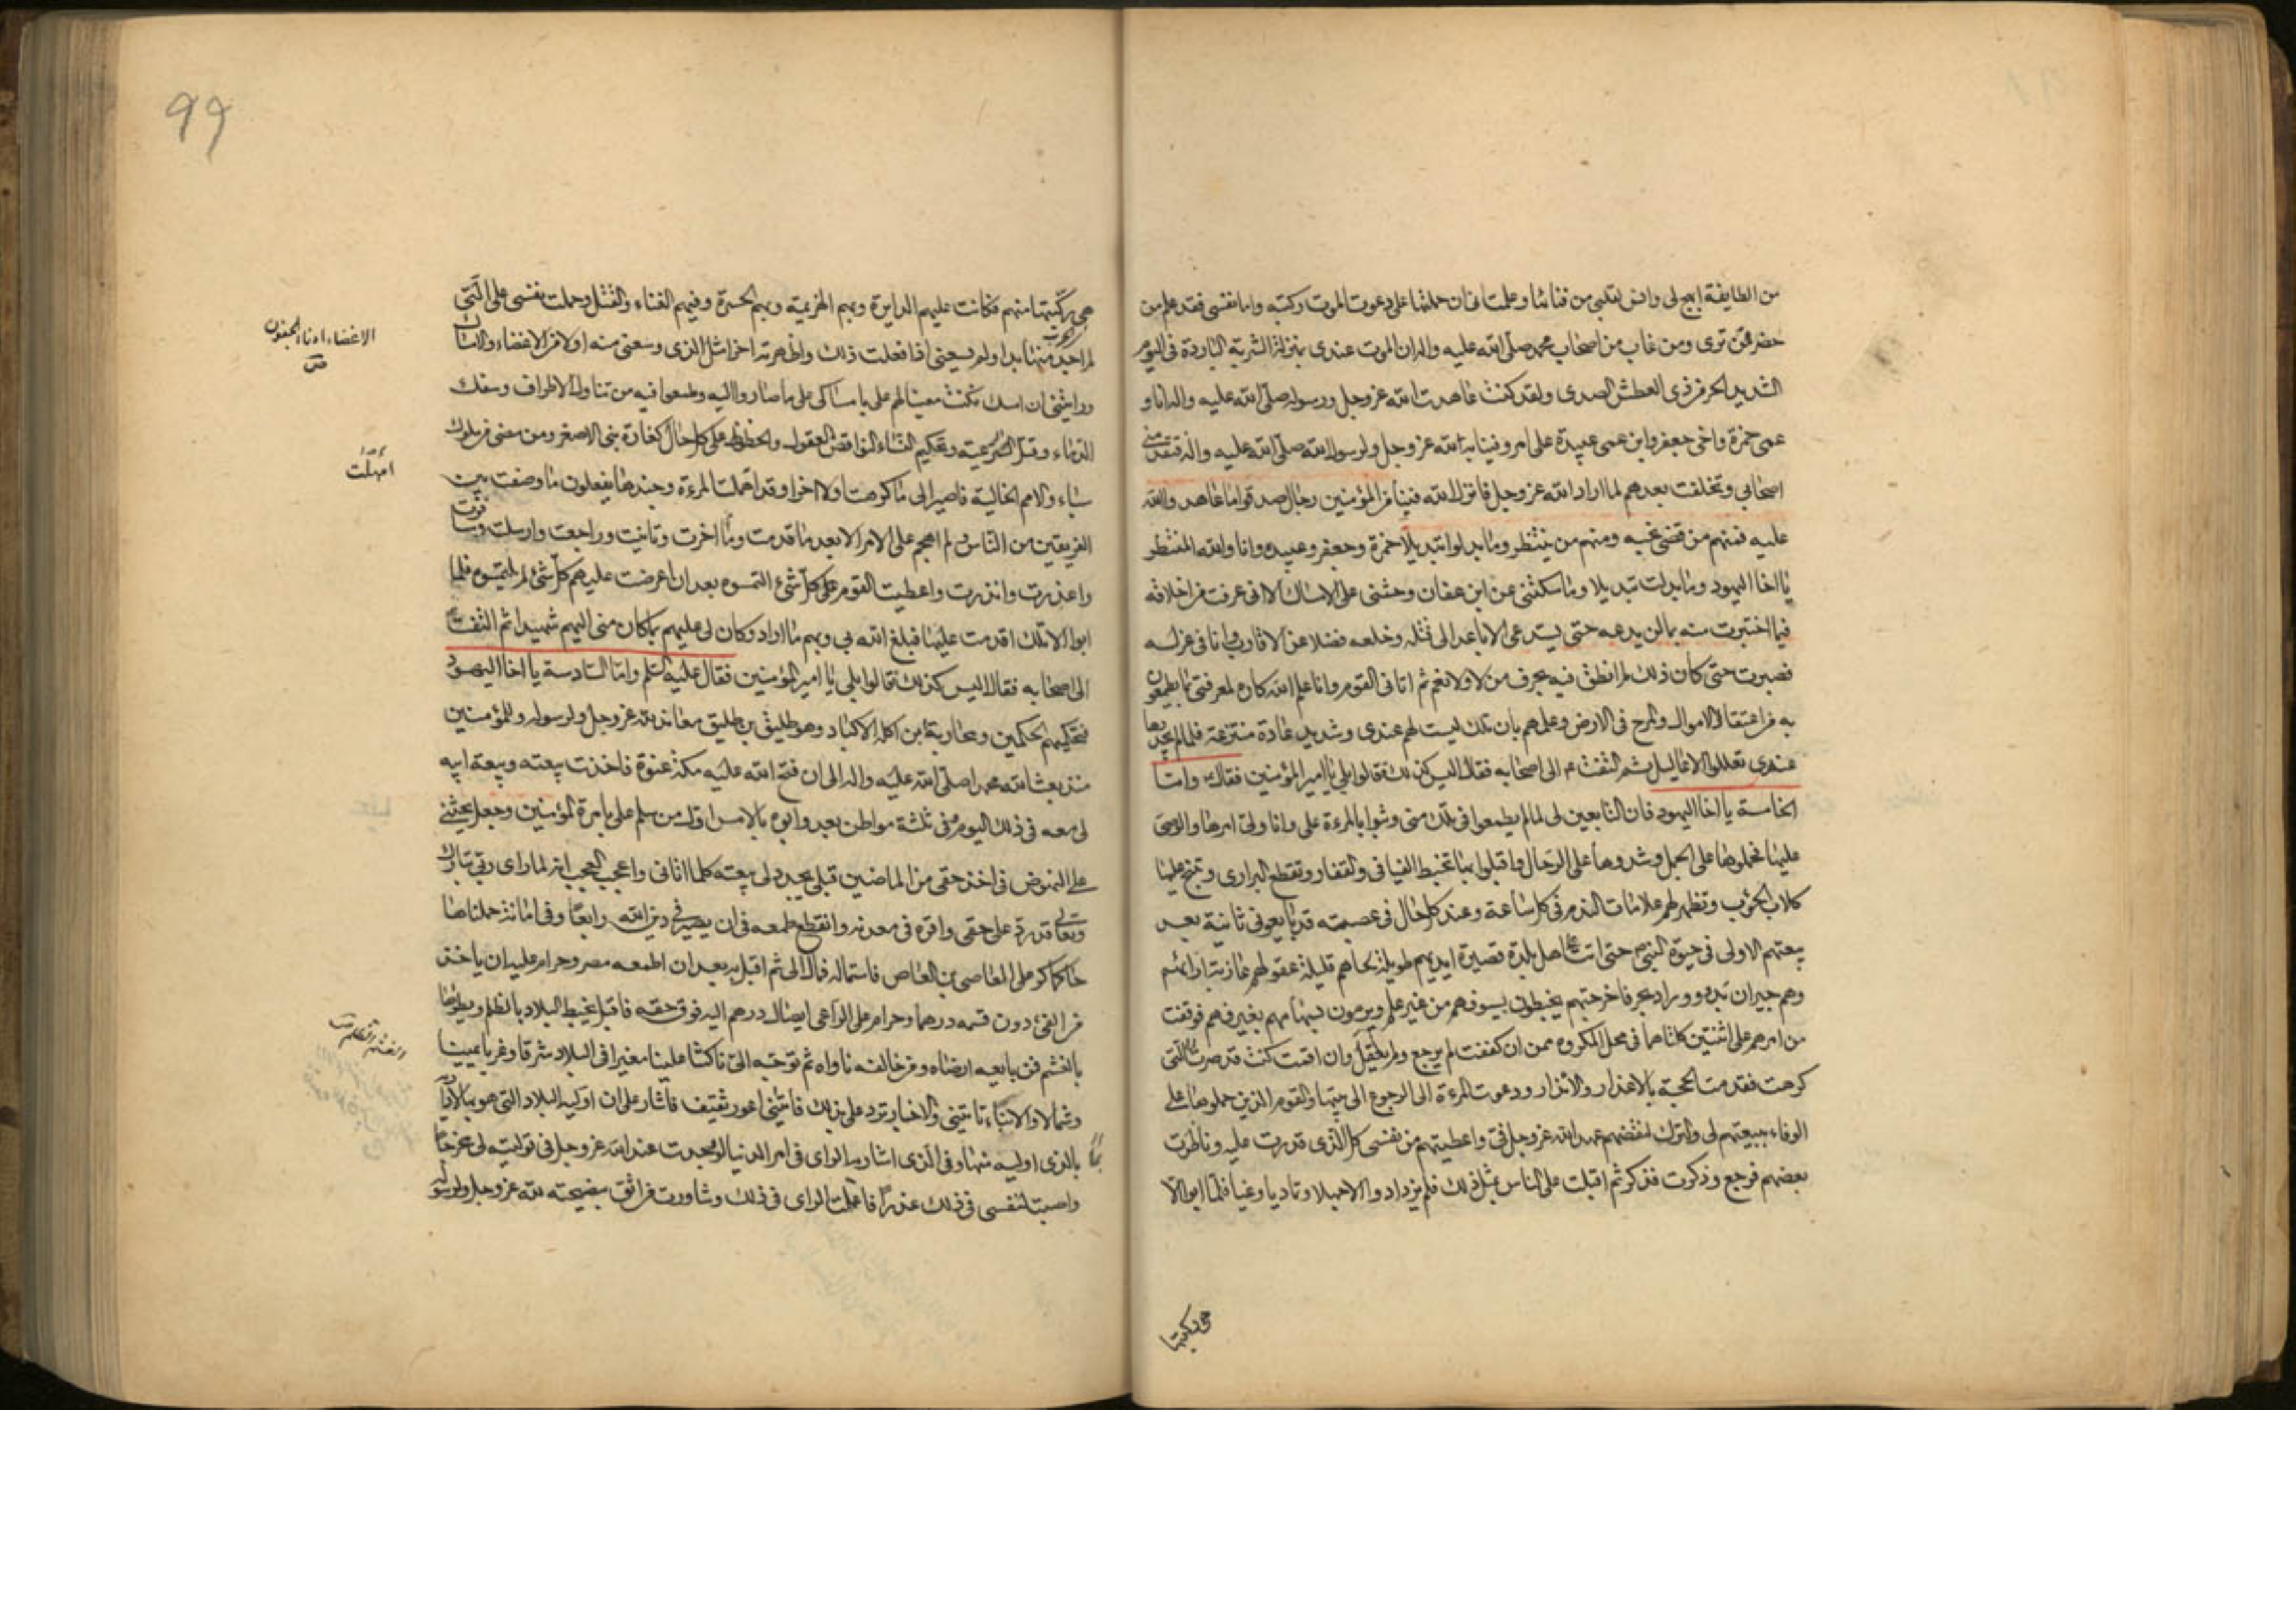 من الطايفة ابهج لى وانس لقلبى من فنائها وعلمت انى ان حملتها على دعوت الموت ركبته واما نفسى فقد علم من
حضر ممن ترى ومن غاب من اصحاب محمد صلى الله عليه واله ان الموت عندى بمنزلة الشربة الباردة فى اليوم
الشديد الحر من ذى العطش الصدى ولقد كنت عاهدت الله عز وجل ورسوله صلى الله عليه واله انا و
عمى حمزة واخى جعفر وابن عمى عبيدة على امر وفينا به لله عز وجل ولرسول الله صلى الله عليه واله فتقدمنى
اصحابى وتخلفت بعدهم لما اراد الله عز وجل فانزل الله فينا من المؤمنين رجال صدقوا ما عاهدوا الله
عليه فمنهم من قضى نحبه ومنهم من ينتظر وما بدلوا تبديلا حمزة وجعفر وعبيده وانا والله المنتظر
يا اخا اليهود وما بدلت تبديلا وما سكتنى عن ابن عفان وحثنى على الامساك الا انى عرفت من اخلاقه
فيما اختبرت منه بما لن يدعه حتى يستدعى الاباعد الى قتله وخلعه فضلا عن الاقارب وانا فى عزلــه
فصبرت حتى كان ذلك لم انطق فيه بحرف من لا ولا نعم ثم اتانى القوم وانا علم الله كاره لمعرفتى بما يطمعون
به من اعتقال الاموال والمرح فى الارض وعلمهم بان تلك ليست لهم عندى وشديد عادة منتزعة فلما لم يجدوها
عندى تعللوا الاعاليل ثم التفت ع الى اصحابه فقال اليس كذلك قالوا بلى يا امير المؤمنين فقال ع واما
الخامسة يا اخا اليهود فان التابعين لى لما لم يطمعوا فى تلك منى وثبوا بالمرءة على وانا ولى امرها والوصى
عليها فحملوها على الجمل وشدوها على الرحال واقبلوا بها تخبط الفيافى والقفار وتقطع البرارى وتنبح عليها
كلاب الحوئب وتظهر لهم علامات الندم فى كل ساعة وعند كل حال فى عصبته قد بايعونى ثانية بعد
بيعتهم الاولى فى حيوة النبى ص حتى اتت اهل بلدة قصيرة ايديهم طويلة لحاهم قليلة عقولهم عازبة ارائهم
وهم جيران بدو ووراد بحر فاخرجتهم يخبطون بسيوفهم من غير علم ويرمون بسهامهم بغير فهم فوقفت
من امرهم على اثنتين كلتاهما فى محل المكروه ممن ان كففت لم يرجع ولم يعقل وان اقمت كنت قد صرت الى التى
كرهت فقدمت الحجة بالاعذار والانذار ودعوت المرءة الى الرجوع الى بيتها والقوم الذين حملوها على
الوفاء ببيعتهم لى والترك لنقضهم عهد الله عز وجل فى واعطيتهم من نفسى كل الذى قدرت عليه وناظرت
بعضهم فرجع وذكرت فذكر ثم اقبلت على الناس بمثل ذلك فلم يزدادوا الا جهلا وتماديا وغيا فلما ابوا الا
هى ركبتها
99
هى ركبتها منهم فكانت عليهم الدايرة وبهم الهزيمة وبهم الحسرة وفيهم الفناء والقتل وحملت نفسى على التى
لم اجد منها بدا ولم يسعنى اذا فعلت ذلك واظهرته اخرا مثل الذى وسعنى منه اولا من الاغضاء والامساك
ورايتنى ان امسك كنت معينا لهم على بامساكى على ما صاروا اليه وطمعوا فيه من تناول الاطراف وسفك
الدماء وقتل الرعية وتحكيم النساء النواقص العقول والحظوظ على كل حال كعادة بنى الاصفر ومن مضى من ملوك
سباء والامم الخالية فاصير الى ما كرهت اولا اخرا وقد اهملت المرءة وجندها يفعلون ما وصفت بين
الفريقين من الناس ولم اهجم على الامر الا بعد ما قدمت وما اخرت وتانيت وراجعت وارسلت وسافرت
واعذرت وانذرت واعطيت القوم على كل شئ التمسوه بعد ان اعرضت عليهم كل شئ لم يلتمسوه فلما
ابوا الا تلك اقدمت عليها فبلغ الله بى وبهم ما اراد وكان لى عليهم بما كان منى اليهم شهيدا ثم التفت ع
الى اصحابه فقال اليس كذلك قالوا بلى يا امير المؤمنين فقال عليه السلم واما السادسة يا اخا اليهود
فتحكيمهم الحكمين ومحاربة ابن اكلة الاكباد وهو طليق بن طليق معاند لله عز وجل ولرسوله وللمؤمنين
منذ بعث الله محمدا صلى الله عليه واله الى ان فتح الله عليه مكة عنوة فاخذت بيعته وبيعة ابيه
لى معه فى ذلك اليوم وفى ثلثة مواطن بعده وابوه بالامس اول من سلم على بامرة المؤمنين وجعل يحثنى
على النهوض فى اخذ حقى من الماضين قبلى يجدد لى بيعته كلما اتانى واعجب العجب انه لما راى ربى تبارك
وتعالى قد رد على حقى واقره فى معدنه وانقطع طمعه فى ان يصير فى دين الله رابعا وفى امانة حملناها
حاكما كر على العاصى بن العاص فاستماله فمال اليه ثم اقبل به بعد ان اطمعه مصر وحرام عليه ان ياخذ
من الفئ دون قسمه درهما وحرام على الراعى ايصال درهم اليه فوق حقه فاقبل يخبط البلاد بالظلم ويطاؤها
بالغشم فمن بايعه ارضاه ومن خالفه ناواه ثم توجه الى ناكثا علينا مغيرا فى البلاد شرقا وغربا يمينا
وشمالا والانباء تاتينى والاخبار ترد على بذلك فاتانى اعور ثقيف فاشار على ان اوليه البلاد التى هو بها لاداريه
بالذى اوليه منها وفى الذى اشار به الراى فى امر الدنيا لو وجدت عند الله عز وجل فى توليته لى مخرجا
واصبت لنفسى فى ذلك عذرا فاعملت الراى فى ذلك وشاورت من اثق بنصيحته لله عز وجل ولرسوله
الاغضاء ادناء الجفون
امهلت
الغشم الظلم